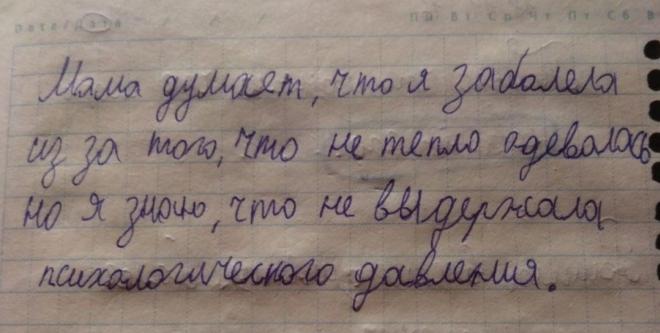 Date/Дата
Пн Вт Ср Чт Пт Сб В
Мама думает, что я заболела
из за того, что не тепло одевалась
но я знаю, что не выдержала
психологического давления.